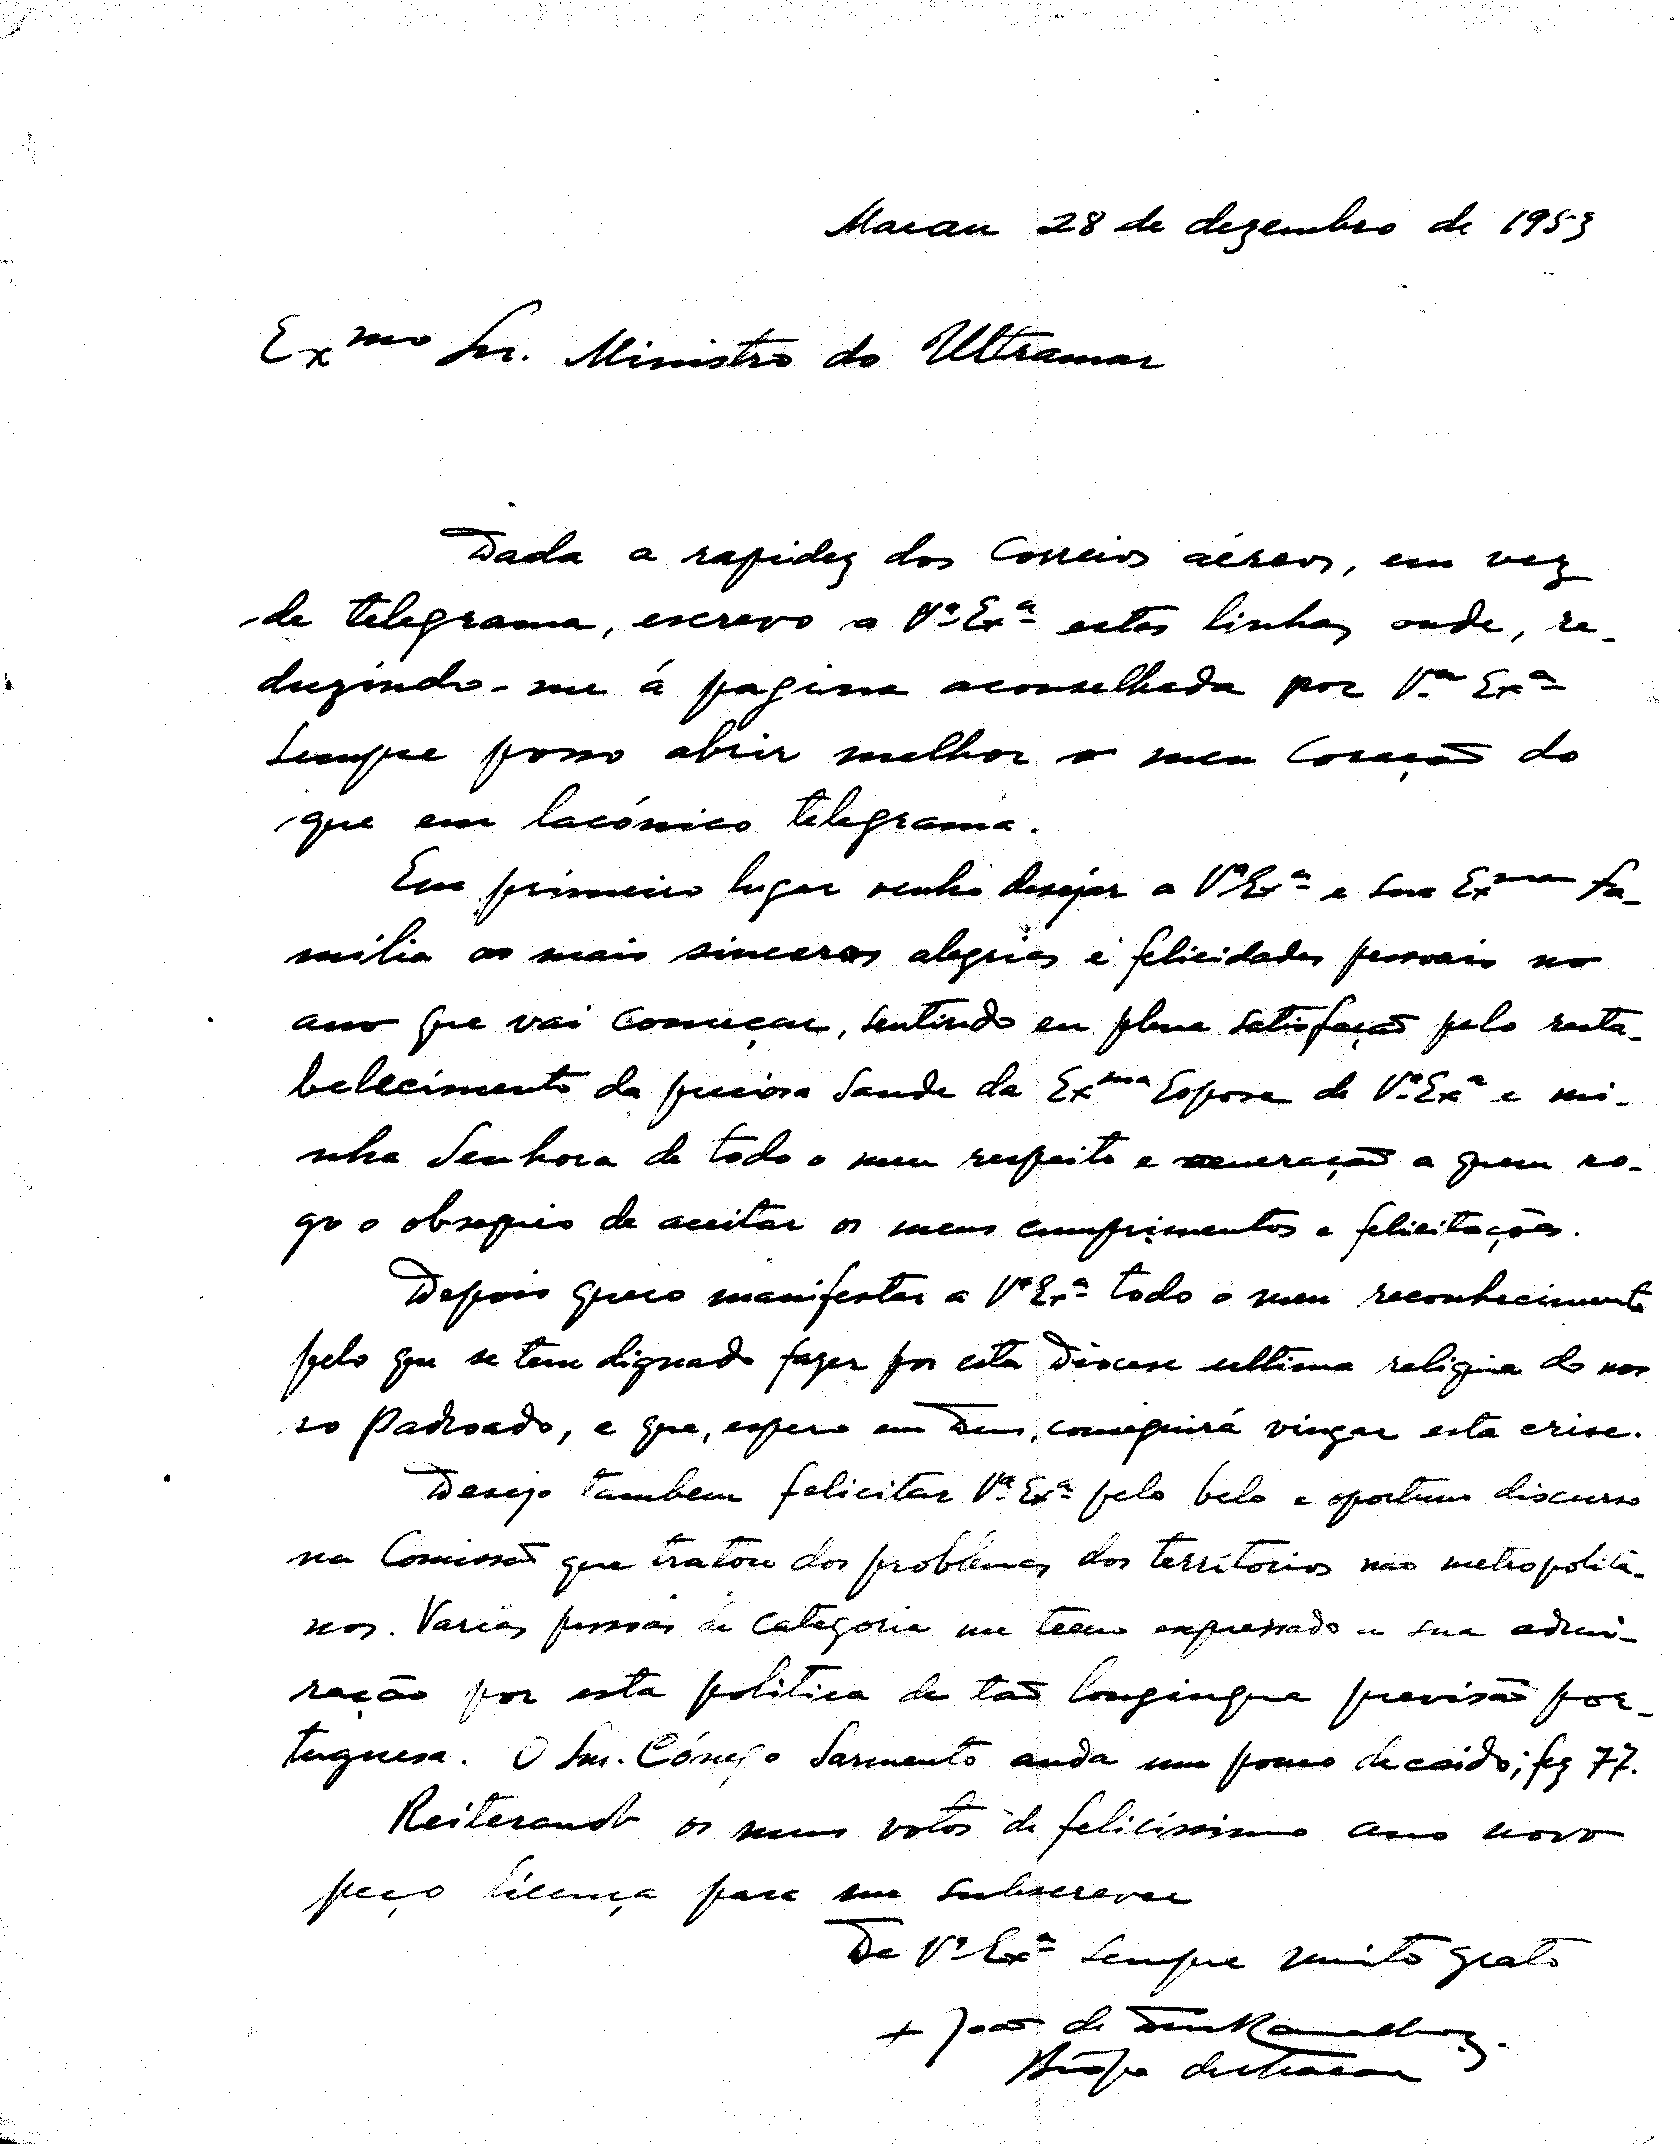 Macau 28 de dezembro de 1953
Exmo Snr. Ministro do Ultramar
Dada a rapidez dos Correios aéreos, em vez
de telegrama, escrevo a Vª Exª estas linhas onde, re-
duzindo-me á pagina aconselhada por Vª Exª
sempre posso abrir melhor o meu Coração do
que em lacónico telegrama.
Em primeiro lugar venho desejar a Vª Exª e sua Exma Fa-
milia as mais sinceras alegrias e felicidades pessoais no
ano que vai começar, sentindo eu plena satisfação pelo resta-
belecimento da preciosa saude da Exma Esposa de Vª Exª e mi-
nha Senhora de todo o meu respeito e veneração a quem ro-
go o obsequio de aceitar os meus cumprimentos e felicitações.
Depois quero manifestar a Vª Exª todo o meu reconhecimento
pelo que se tem dignado fazer por esta Diocese ultima reliquia do nos
so Padroado, e que, espero em Deus, conseguirá vingar esta crise.
Desejo tambem felicitar Vª Exª pelo belo e oportuno discurso
na Comissão que tratou dos problemas dos territorios não metropolita-
nos. Varias pessoas de categoria me teem expressado a sua admi-
ração por esta politica de tão longinqua previsão por-
tuguesa. O Snr. Cónego Sarmento anda um pouco decaido; fez 77.
Reiterando os meus votos de felicissimo ano novo
peço licença para me subscrever
De Vª Exª sempre muito grato
+ João de Deus Ramalho
Bispo de Macau